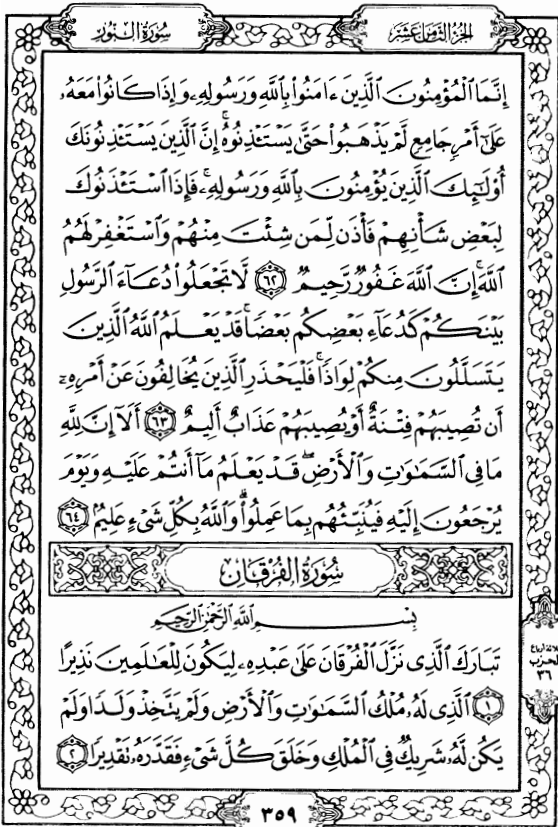 الجزء الثامن عشر
سورة النور
إِنَّمَا ٱلْمُؤْمِنُونَ ٱلَّذِينَ ءَامَنُوا۟ بِٱللَّهِ وَرَسُولِهِۦ وَإِذَا كَانُوا۟ مَعَهُۥ
عَلَىٰٓ أَمْرٍ جَامِعٍ لَّمْ يَذْهَبُوا۟ حَتَّىٰ يَسْتَـْٔذِنُوهُ ۚ إِنَّ ٱلَّذِينَ يَسْتَـْٔذِنُونَكَ
أُو۟لَـٰٓئِكَ ٱلَّذِينَ يُؤْمِنُونَ بِٱللَّهِ وَرَسُولِهِۦ ۚ فَإِذَا ٱسْتَـْٔذَنُوكَ
لِبَعْضِ شَأْنِهِمْ فَأْذَن لِّمَن شِئْتَ مِنْهُمْ وَٱسْتَغْفِرْ لَهُمُ
ٱللَّهَ ۚ إِنَّ ٱللَّهَ غَفُورٌ رَّحِيمٌ ٦٢ لَّا تَجْعَلُوا۟ دُعَآءَ ٱلرَّسُولِ
بَيْنَكُمْ كَدُعَآءِ بَعْضِكُم بَعْضًا ۚ قَدْ يَعْلَمُ ٱللَّهُ ٱلَّذِينَ
يَتَسَلَّلُونَ مِنكُمْ لِوَاذًا ۚ فَلْيَحْذَرِ ٱلَّذِينَ يُخَالِفُونَ عَنْ أَمْرِهِۦٓ
أَن تُصِيبَهُمْ فِتْنَةٌ أَوْ يُصِيبَهُمْ عَذَابٌ أَلِيمٌ ٦٣ أَلَآ إِنَّ لِلَّهِ
مَا فِى ٱلسَّمَـٰوَٰتِ وَٱلْأَرْضِ ۖ قَدْ يَعْلَمُ مَآ أَنتُمْ عَلَيْهِ وَيَوْمَ
يُرْجَعُونَ إِلَيْهِ فَيُنَبِّئُهُم بِمَا عَمِلُوا۟ ۗ وَٱللَّهُ بِكُلِّ شَىْءٍ عَلِيمٌ ٦٤
سُورَةُ الْفُرْقَانِ
بِسْمِ ٱللَّهِ ٱلرَّحْمَـٰنِ ٱلرَّحِيمِ
تَبَارَكَ ٱلَّذِى نَزَّلَ ٱلْفُرْقَانَ عَلَىٰ عَبْدِهِۦ لِيَكُونَ لِلْعَـٰلَمِينَ نَذِيرًا
١ ٱلَّذِى لَهُۥ مُلْكُ ٱلسَّمَـٰوَٰتِ وَٱلْأَرْضِ وَلَمْ يَتَّخِذْ وَلَدًا وَلَمْ
يَكُن لَّهُۥ شَرِيكٌ فِى ٱلْمُلْكِ وَخَلَقَ كُلَّ شَىْءٍ فَقَدَّرَهُۥ تَقْدِيرًا ٢
أرباع
الحزب
٣٦
٣٥٩